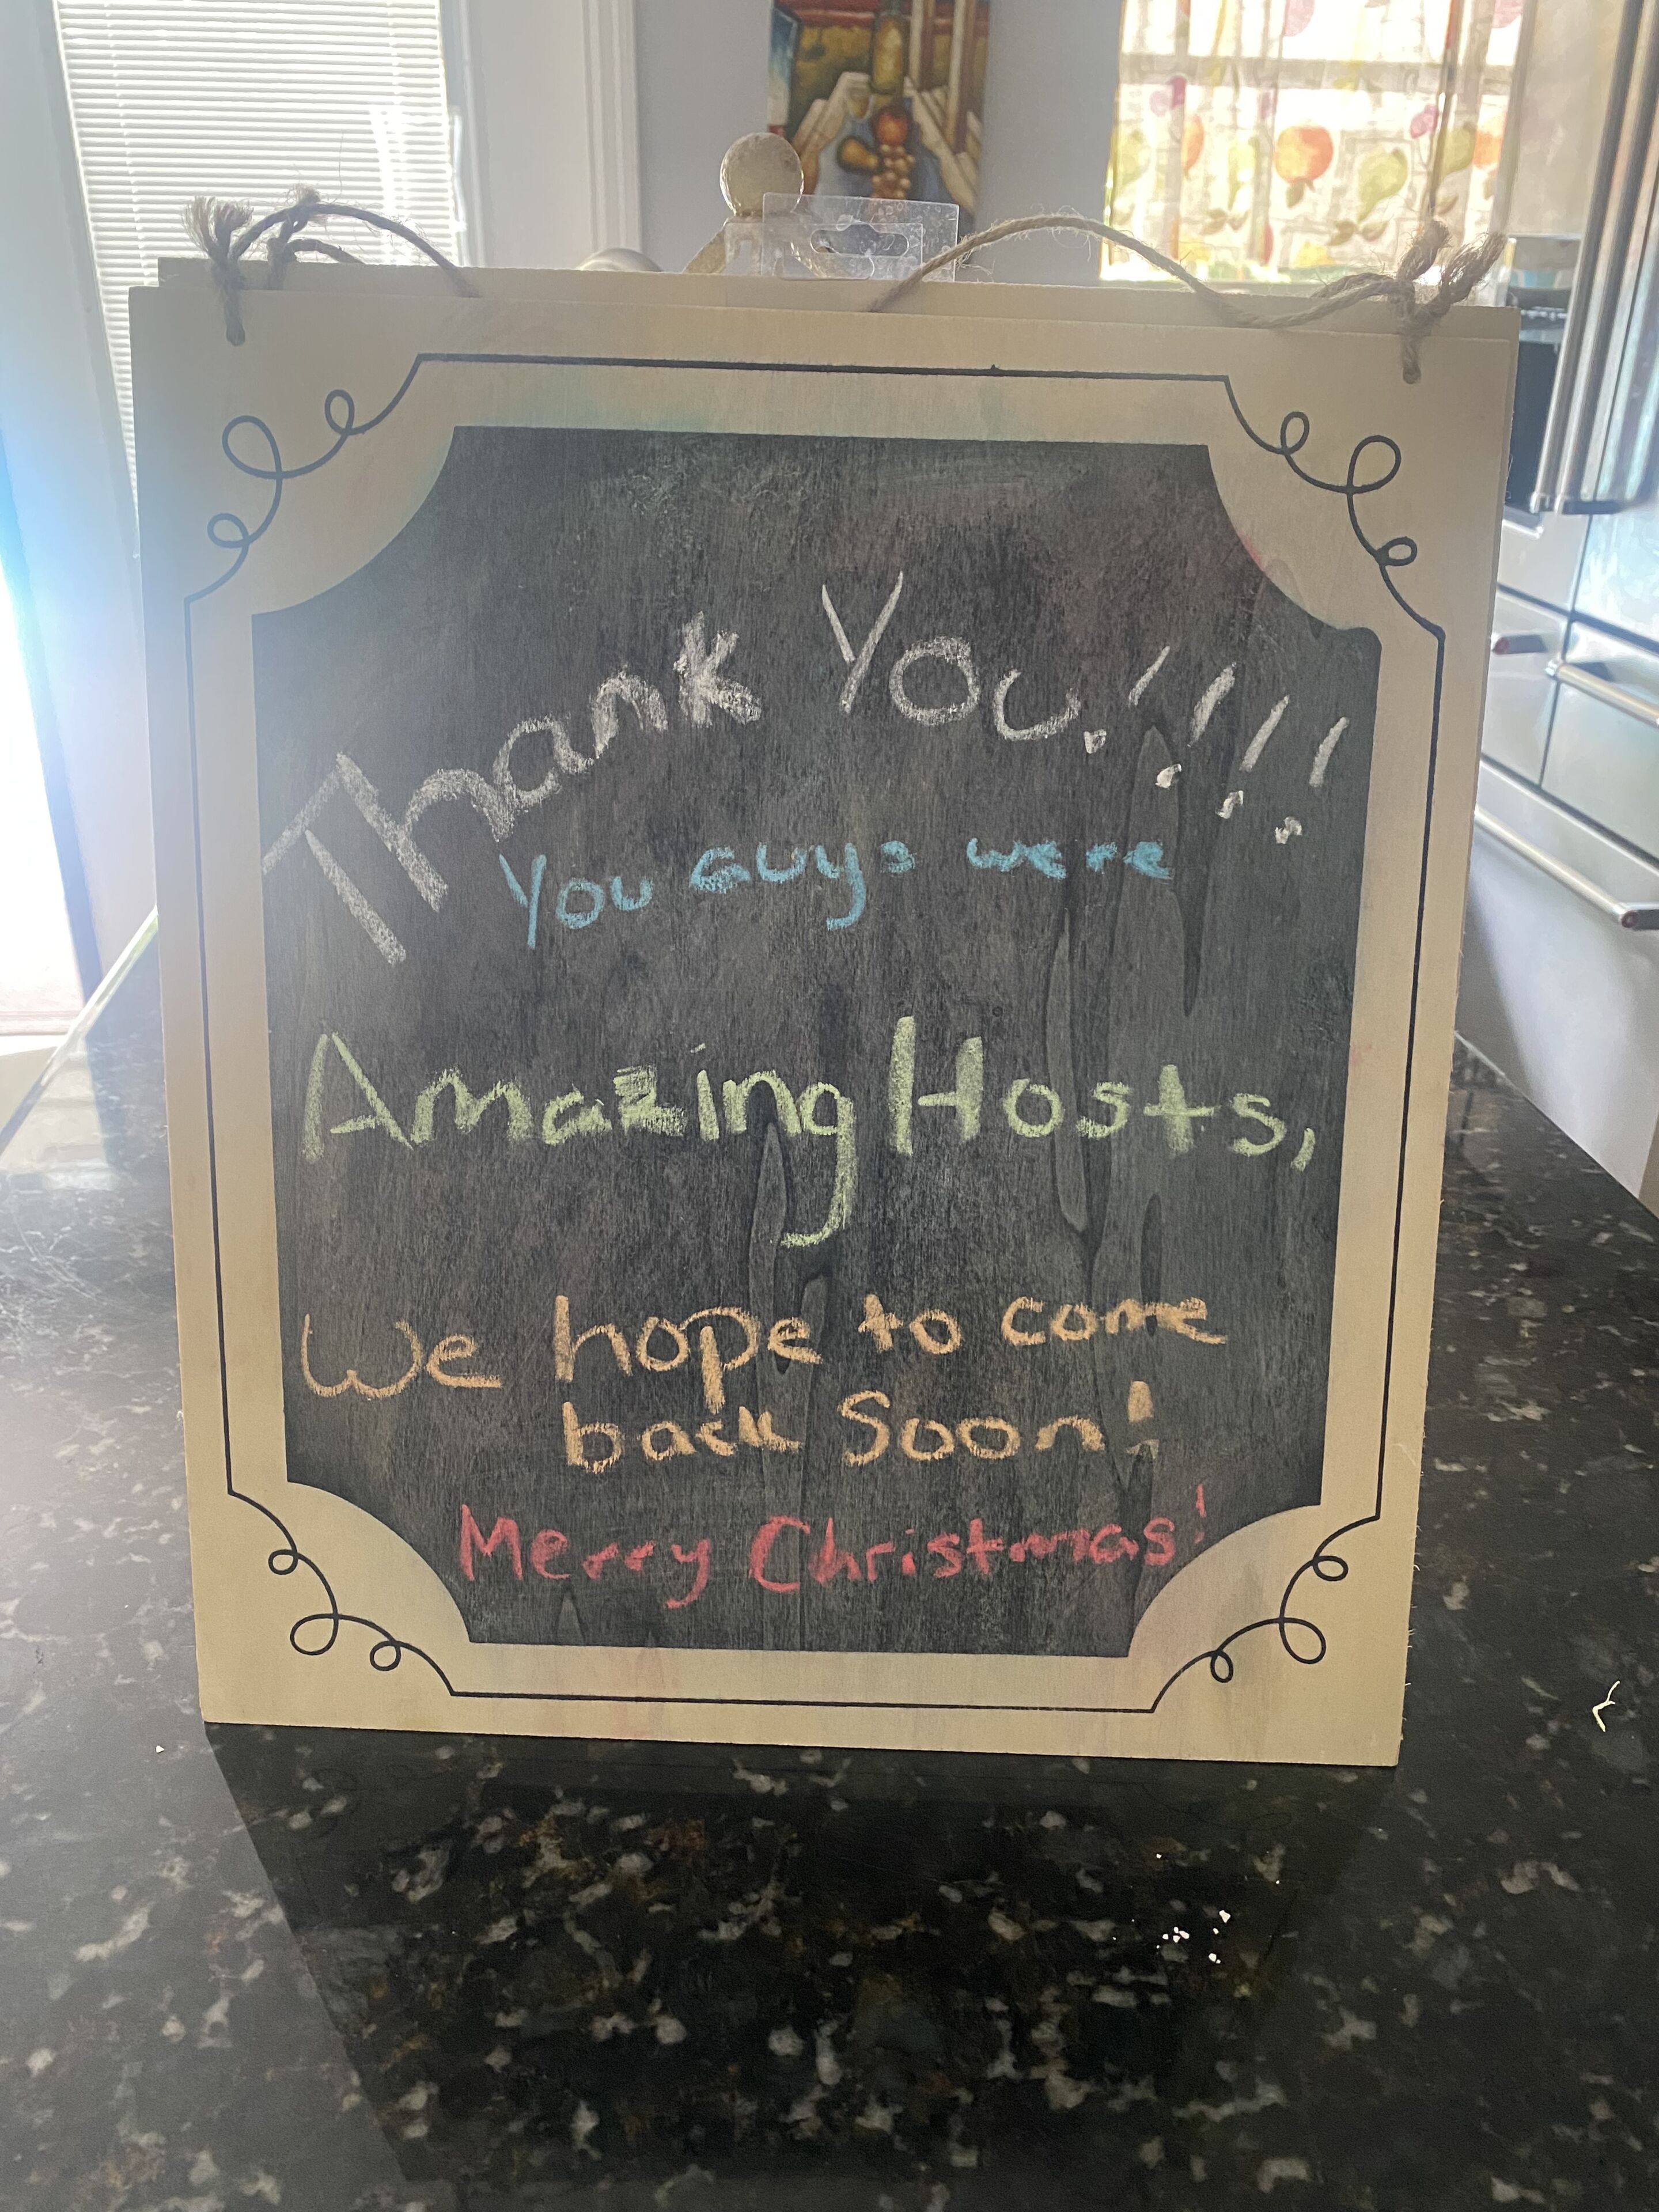 Thank You!!!!
You Guys were
Amazing Hosts,
We hope to come
back Soon!
Merry Christmas!